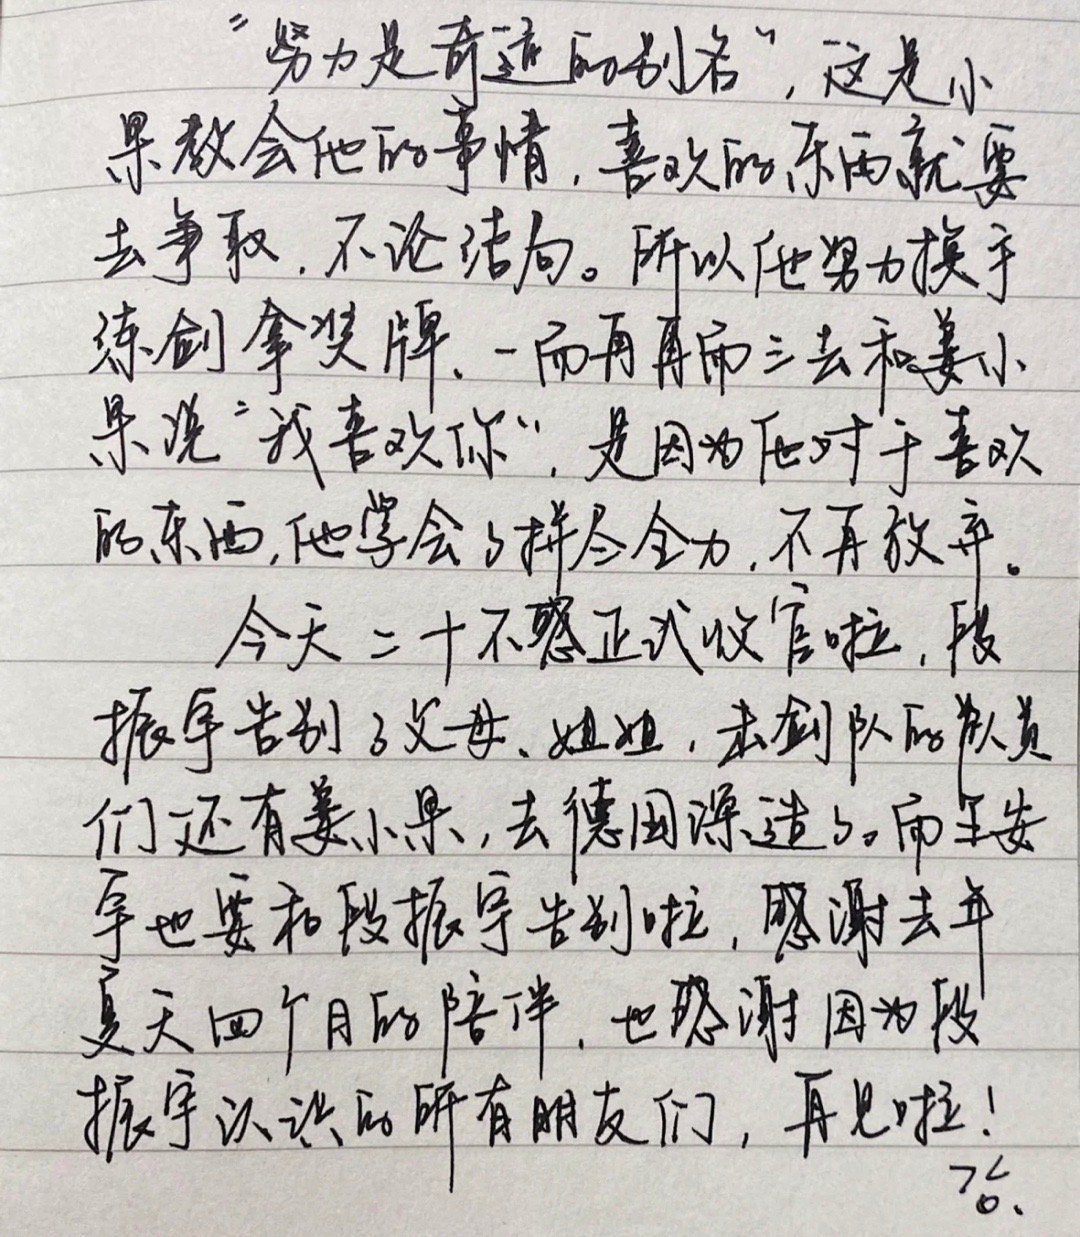 “努力是奇迹的别名”,这是小
果教会他的事情,喜欢的东西就要
去争取,不论结局。所以他努力换手
练剑拿奖牌、一而再再而三去和姜小
果说“我喜欢你”,是因为他对于喜欢
的东西,他学会了拼尽全力,不再放弃。
今天二十不惑正式收官啦,段
振宇告别了父母、姐姐,击剑队的队员
们还有姜小果,去德国深造了。而王安
宇也要和段振宇告别啦,感谢去年
夏天四个月的陪伴,也感谢因为段
振宇认识的所有朋友们,再见啦!